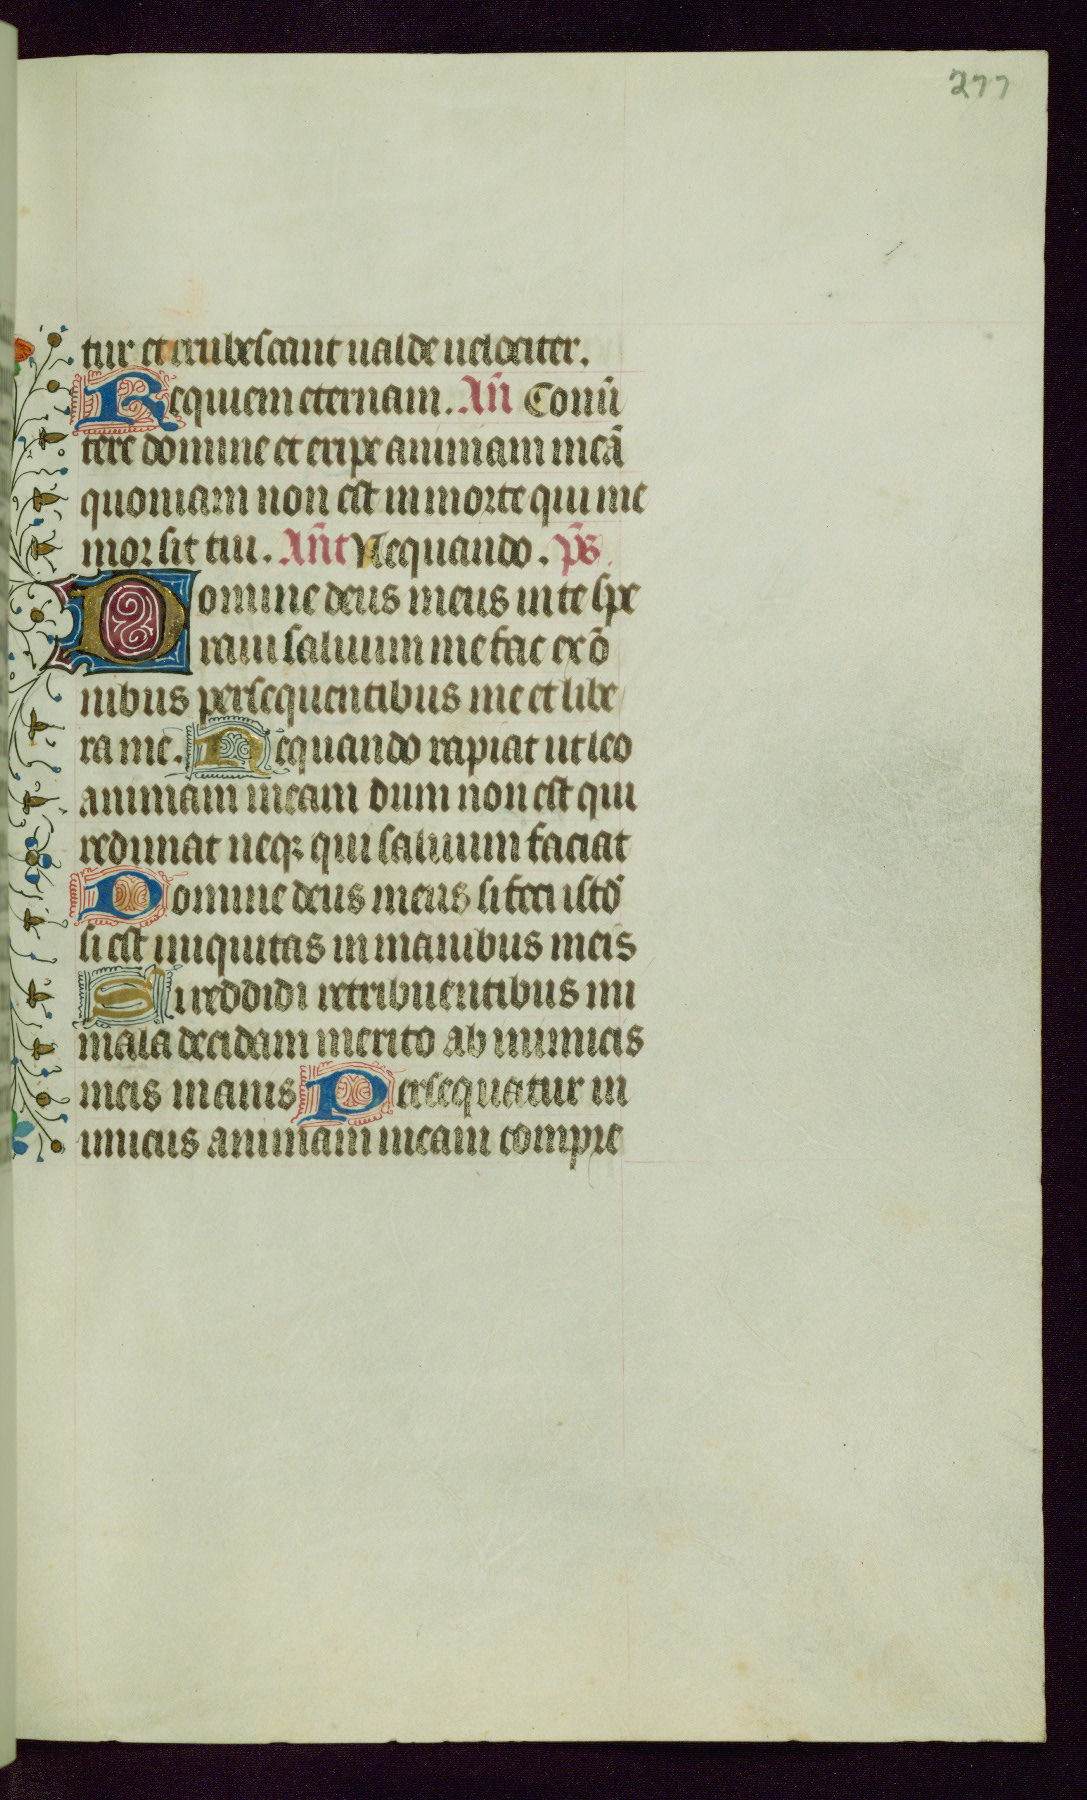 277
tur et erubescant ualde uelociter.
Requiem eternam. An̄ Conū
tere domine et eripe animam meā
quoniam non est in morte qui me
mor sit tui. An̄t Nequando. p̄s.
Domine deus meus in te spe
raui saluum me fac ex ō
nibus persequentibus me et libe
ra me. Nequando rapiat ut leo
animam meam dum non est qui
redimat neqꝫ qui saluum faciat
Domine deus meus si feci istđ
si est iniquitas in manibus meis
Si reddidi retribuentibus mi
mala decidam merito ab inimicis
meis inanis Persequatur in
imicus animam meam compre